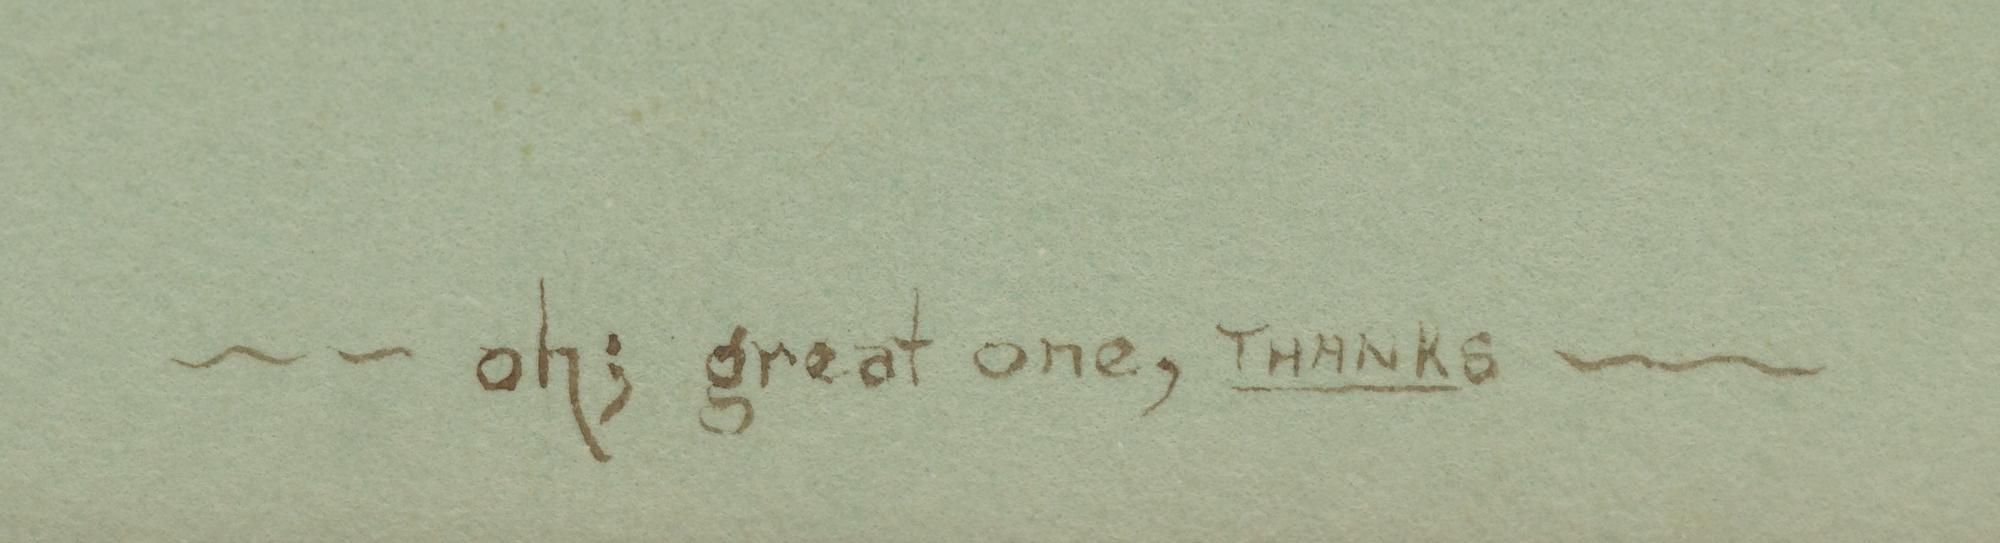 ~~ oh; great one, THANKS ~